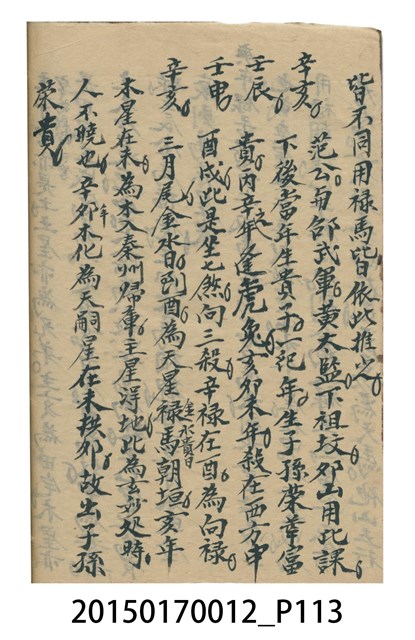 皆不同用禄馬皆依此推光
辛亥 范公与邵武軍黄太監下祖坟卯山用此課
壬辰 下後當年生貴子一記年生子孫榮華富
貴丙辛之年逢虎兔亥卯未年殺在西方申
壬申 酉戌此是坐七煞向三殺辛禄在酉為向禄
辛亥 三月尾金水日到酉為天星禄馬朝垣亥年
逢水貴日
木星在未為木入秦州歸垣主星得地此為玄妙处時
人不曉也辛卯年木化為天嗣星在未拱卯故出子孫
榮貴
20150170012_P113